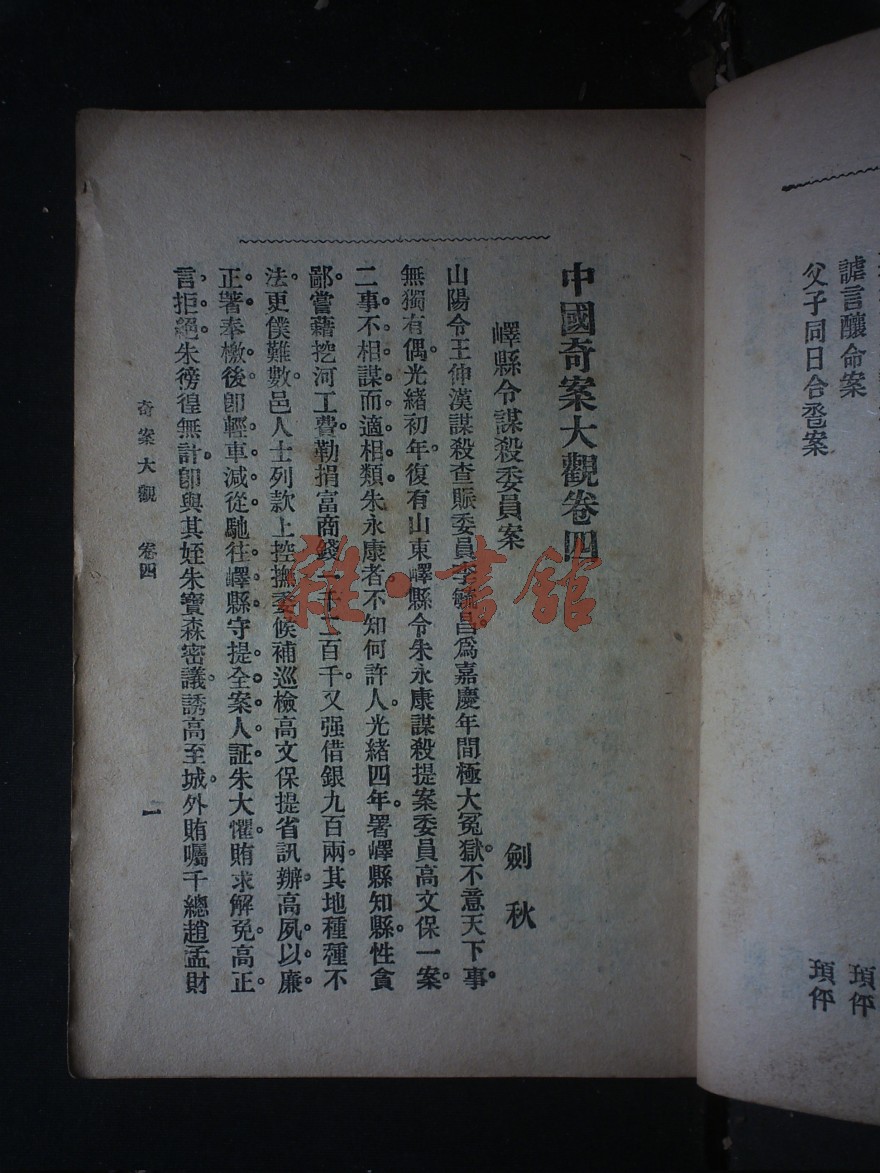 謔言釀命案
瑣佂
父子同日合巹案
瑣佂
中國奇案大觀卷四
嶧縣令謀殺委員案
劍秋
山陽令王伸漢謀殺查賑委員李毓昌爲嘉慶年間極大冤獄。不意天下事。
無獨有偶。光緒初年。復有山東嶧縣令朱永康謀殺提案委員高文保一案。
二事不相謀而適相類。朱永康者不知何許人。光緒四年。署嶧縣知縣。性貪
鄙。嘗藉挖河工費。勒捐富商錢一千二百千。又强借銀九百兩。其地種種不
法。更僕難數。邑人士列款上控。撫委候補巡檢高文保提省訊辦。高夙以廉
正著。奉檄後卽輕車減從。馳往嶧縣。守提全案人証。朱大懼。賄求解免。高正
言拒絕。朱徬徨無計。卽與其姪朱寶森密議。誘高至城外。賄囑千總趙孟財
奇案大觀 卷四
一
雜·書館